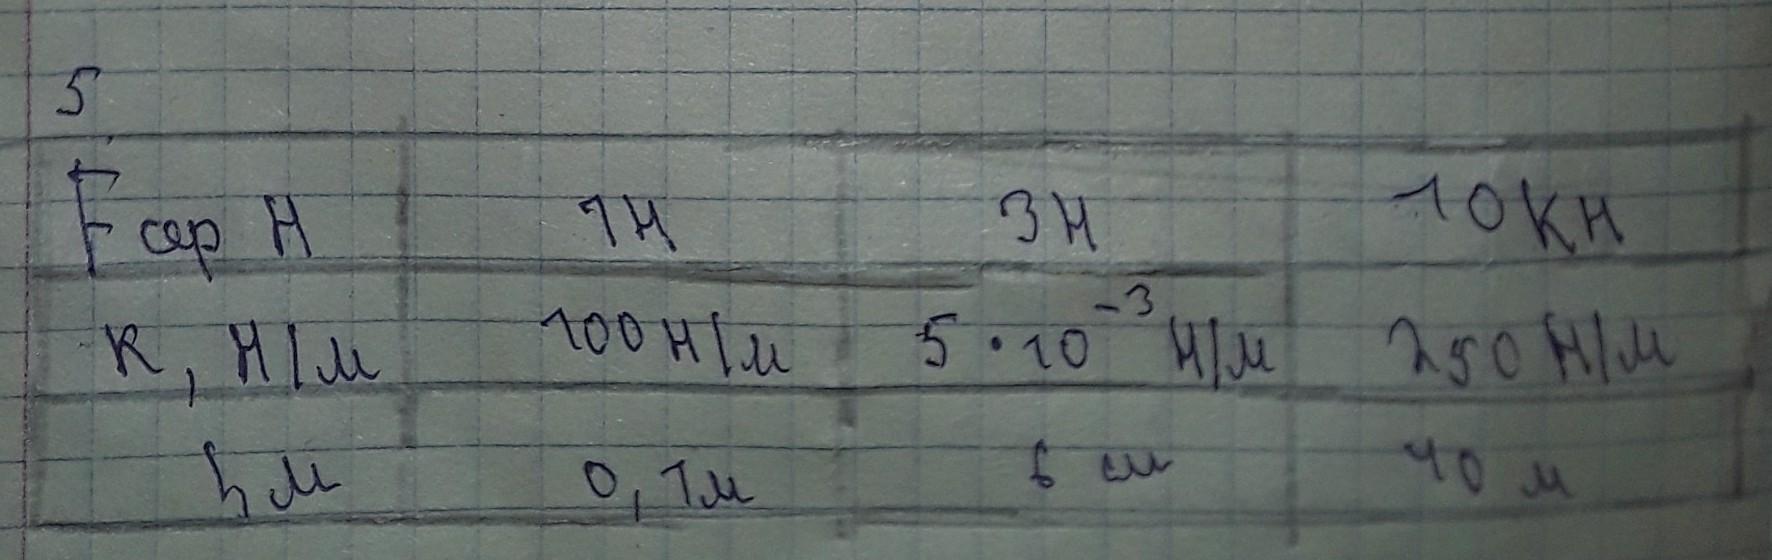 5
F сер Н 1Н 3Н 10КН
К, Н/м 100Н/м 5•10⁻³ Н/м 250Н/м
h м 0,1м 6 см 40 м